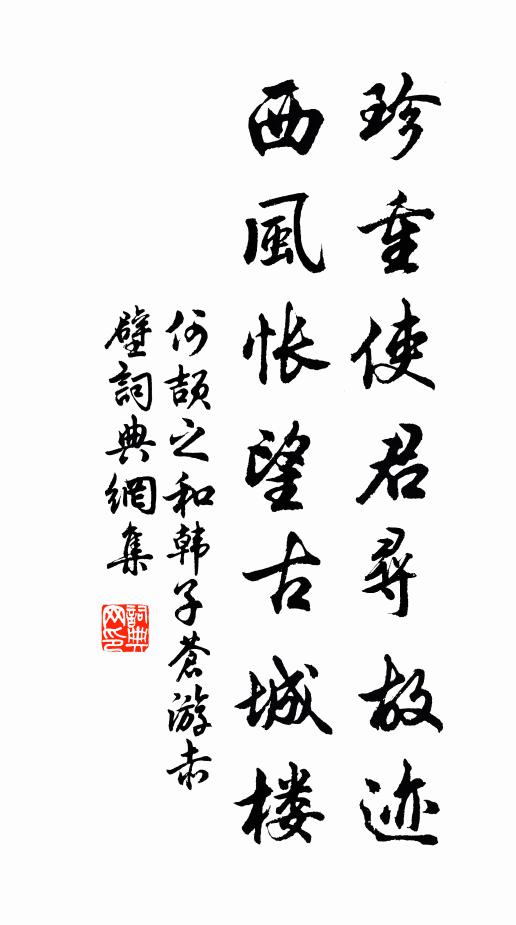 珍重使君尋故迹
西風悵望古城楼
何頡之和韩子蒼游赤
壁詞典網集
詞典
网印